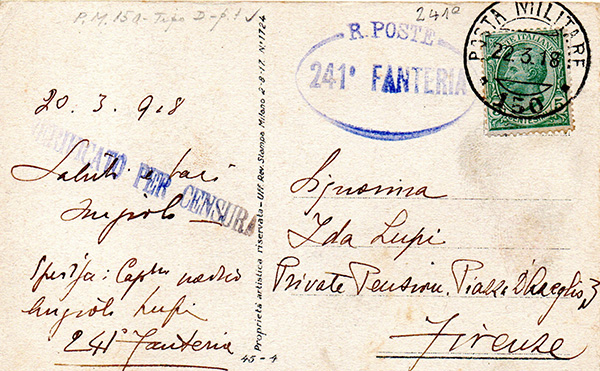 P.M. 151 - Tipo D-p.t
241ª
R. POSTE
241° FANTERIA
POSTA MILITARE
22.3.18
150
POSTE ITALIANE
5
20. 3. 918
Saluti e baci
Angiolo
VERIFICATO PER CENSURA
Spedisce: Capitano medico
Angiolo Lupi
241° Fanteria
Proprietà artistica riservata - Uff. Rev. Stampa Milano 2-8-17. N. 1724
45-4
Signorina
Ida Lupi
Private Pension. Piazza D'Azeglio, 3
Firenze